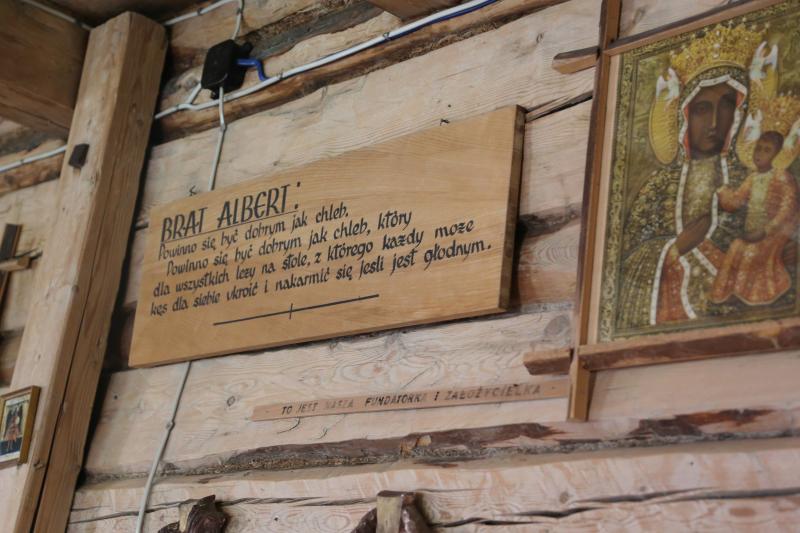 BRAT ALBERT:
Powinno się być dobrym jak chleb.
Powinno się być dobrym jak chleb, który
dla wszystkich leży na stole, z którego każdy może
kęs dla siebie ukroić i nakarmić się jeśli jest głodnym.
TO JEST NASZA FUNDATORKA I ZAŁOŻYCIELKA